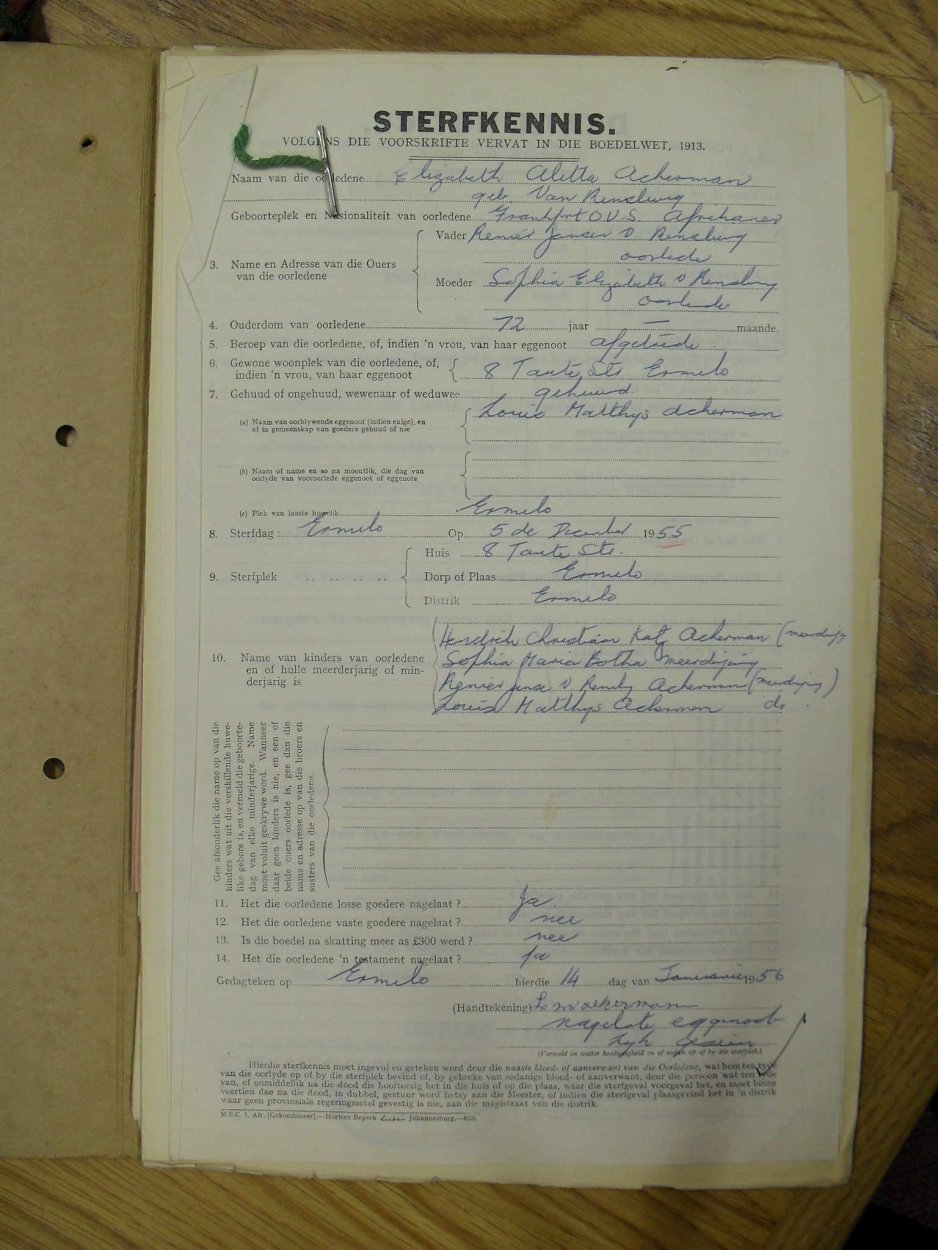 STERFKENNIS.
VOLGENS DIE VOORSKRIFTE VERVAT IN DIE BOEDELWET, 1913.
Naam van die oorledene Elizabeth Aletta Ackerman
geb. Van Rensburg
Geboorteplek en Nasionaliteit van oorledene Frankfort O.V.S. Afrikaner
Vader Renier Jansen v. Rensburg
oorlede
3. Name en Adresse van die Ouers van die oorledene
Moeder Sophia Elizabeth v Rensburg
oorlede
4. Ouderdom van oorledene 72 jaar — maande.
5. Beroep van die oorledene, of, indien 'n vrou, van haar eggenoot afgetrede
6. Gewone woonplek van die oorledene, of, indien 'n vrou, van haar eggenoot 8 Taute Str Ermelo
7. Gehuud of ongehuud, wewenaar of weduwee gehuud
(a) Naam van oorblywende eggenoot (indien enige), en of in gemeenskap van goedere gehuud of nie Louis Matthys Ackerman
(b) Naam of name en so na moontlik, die dag van oorlyde van vooroorlede eggenoot of eggenote
(c) Plek van laaste huwelik Ermelo
8. Sterfdag: Ermelo Op 5 de December 1955
Huis 8 Taute Str.
9. Sterfplek .. .. .. .. Dorp of Plaas Ermelo
Distrik Ermelo
Hendrik Christiaan Ackerman (meerderjarig
10. Name van kinders van oorledene en of hulle meerderjarig of minderjarig is
Sophia Maria Botha meerderjarig
Renier Ackerman (meerderjarig)
Louis Matthys Ackerman do.
Gee afsonderlik die name op van die
kinders wat uit die verskillende huwe-
like gebore is, en vermeld die geboorte-
dag van elke minderjarige. Name
moet voluit geskrywe word. Wanneer
daar geen kinders is nie, en een of
beide ouers oorlede is, gee dan die
name en adresse op van die broers en
susters van die oorledene.
11. Het die oorledene losse goedere nagelaat? Ja
12. Het die oorledene vaste goedere nagelaat? nee
13. Is die boedel na skatting meer as £300 werd? nee
14. Het die oorledene 'n testament nagelaat? Ja
Gedagteken op Ermelo hierdie 14 dag van Januarie 1956
(Handtekening) L M Ackermann
nagelate eggenoot
(Vermeld in watter hoedanigheid en of aanwesig op of by die sterfplek.)
Hierdie sterfkennis moet ingevul en geteken word deur die naaste bloed- of aanverwant van die Oorledene, wat hom ten tyde
van die oorlyde op of by die sterfplek bevind of, by gebreke van sodanige bloed- of aanverwant, deur die persoon wat ten tyde
van, of onmiddellik na die dood die hooftoesig het in die huis of op die plaas, waar die sterfgeval voorgeval het, en moet binne
veertien dae na die dood, in dubbel, gestuur word hetsy aan die Meester, of indien die sterfgeval plaasgevind het in 'n distrik
waar geen provinsiale regeringssetel gevestig is nie, aan die magistraat van die distrik.
M.S.C. 1. Afr. [Gekombineer].—Hortors Beperk Johannesburg.—626.